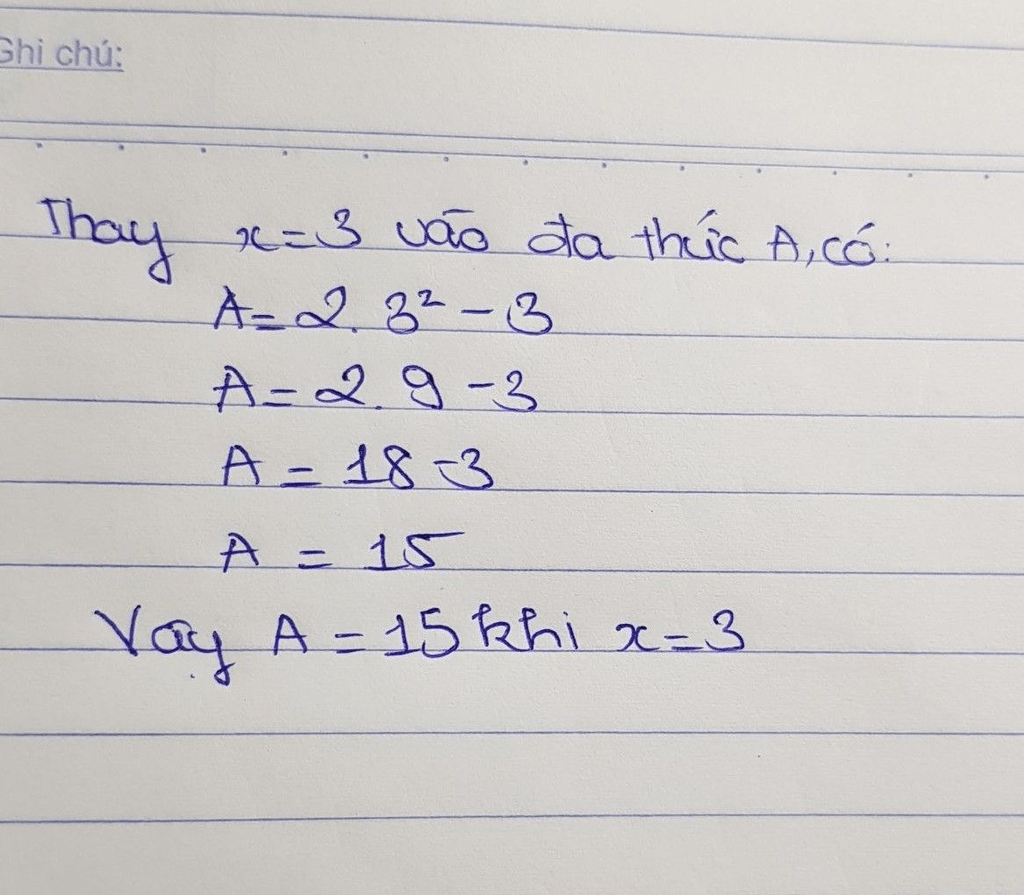 Ghi chú:
Thay x=3 vào đa thức A, có:
A = 2. 3² - 3
A = 2. 9 - 3
A = 18 - 3
A = 15
Vậy A = 15 khi x = 3